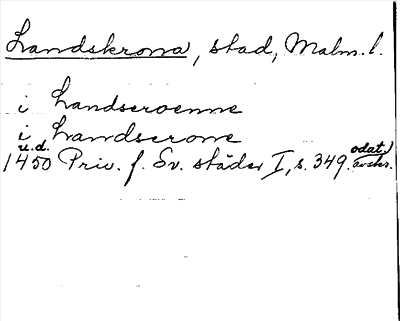 Landskrona, stad, Malm. l.
i Landscroenne
i Landscrone
u.d.
1450 Priv. f. Sv. städer I, s. 349. odat. avskr.